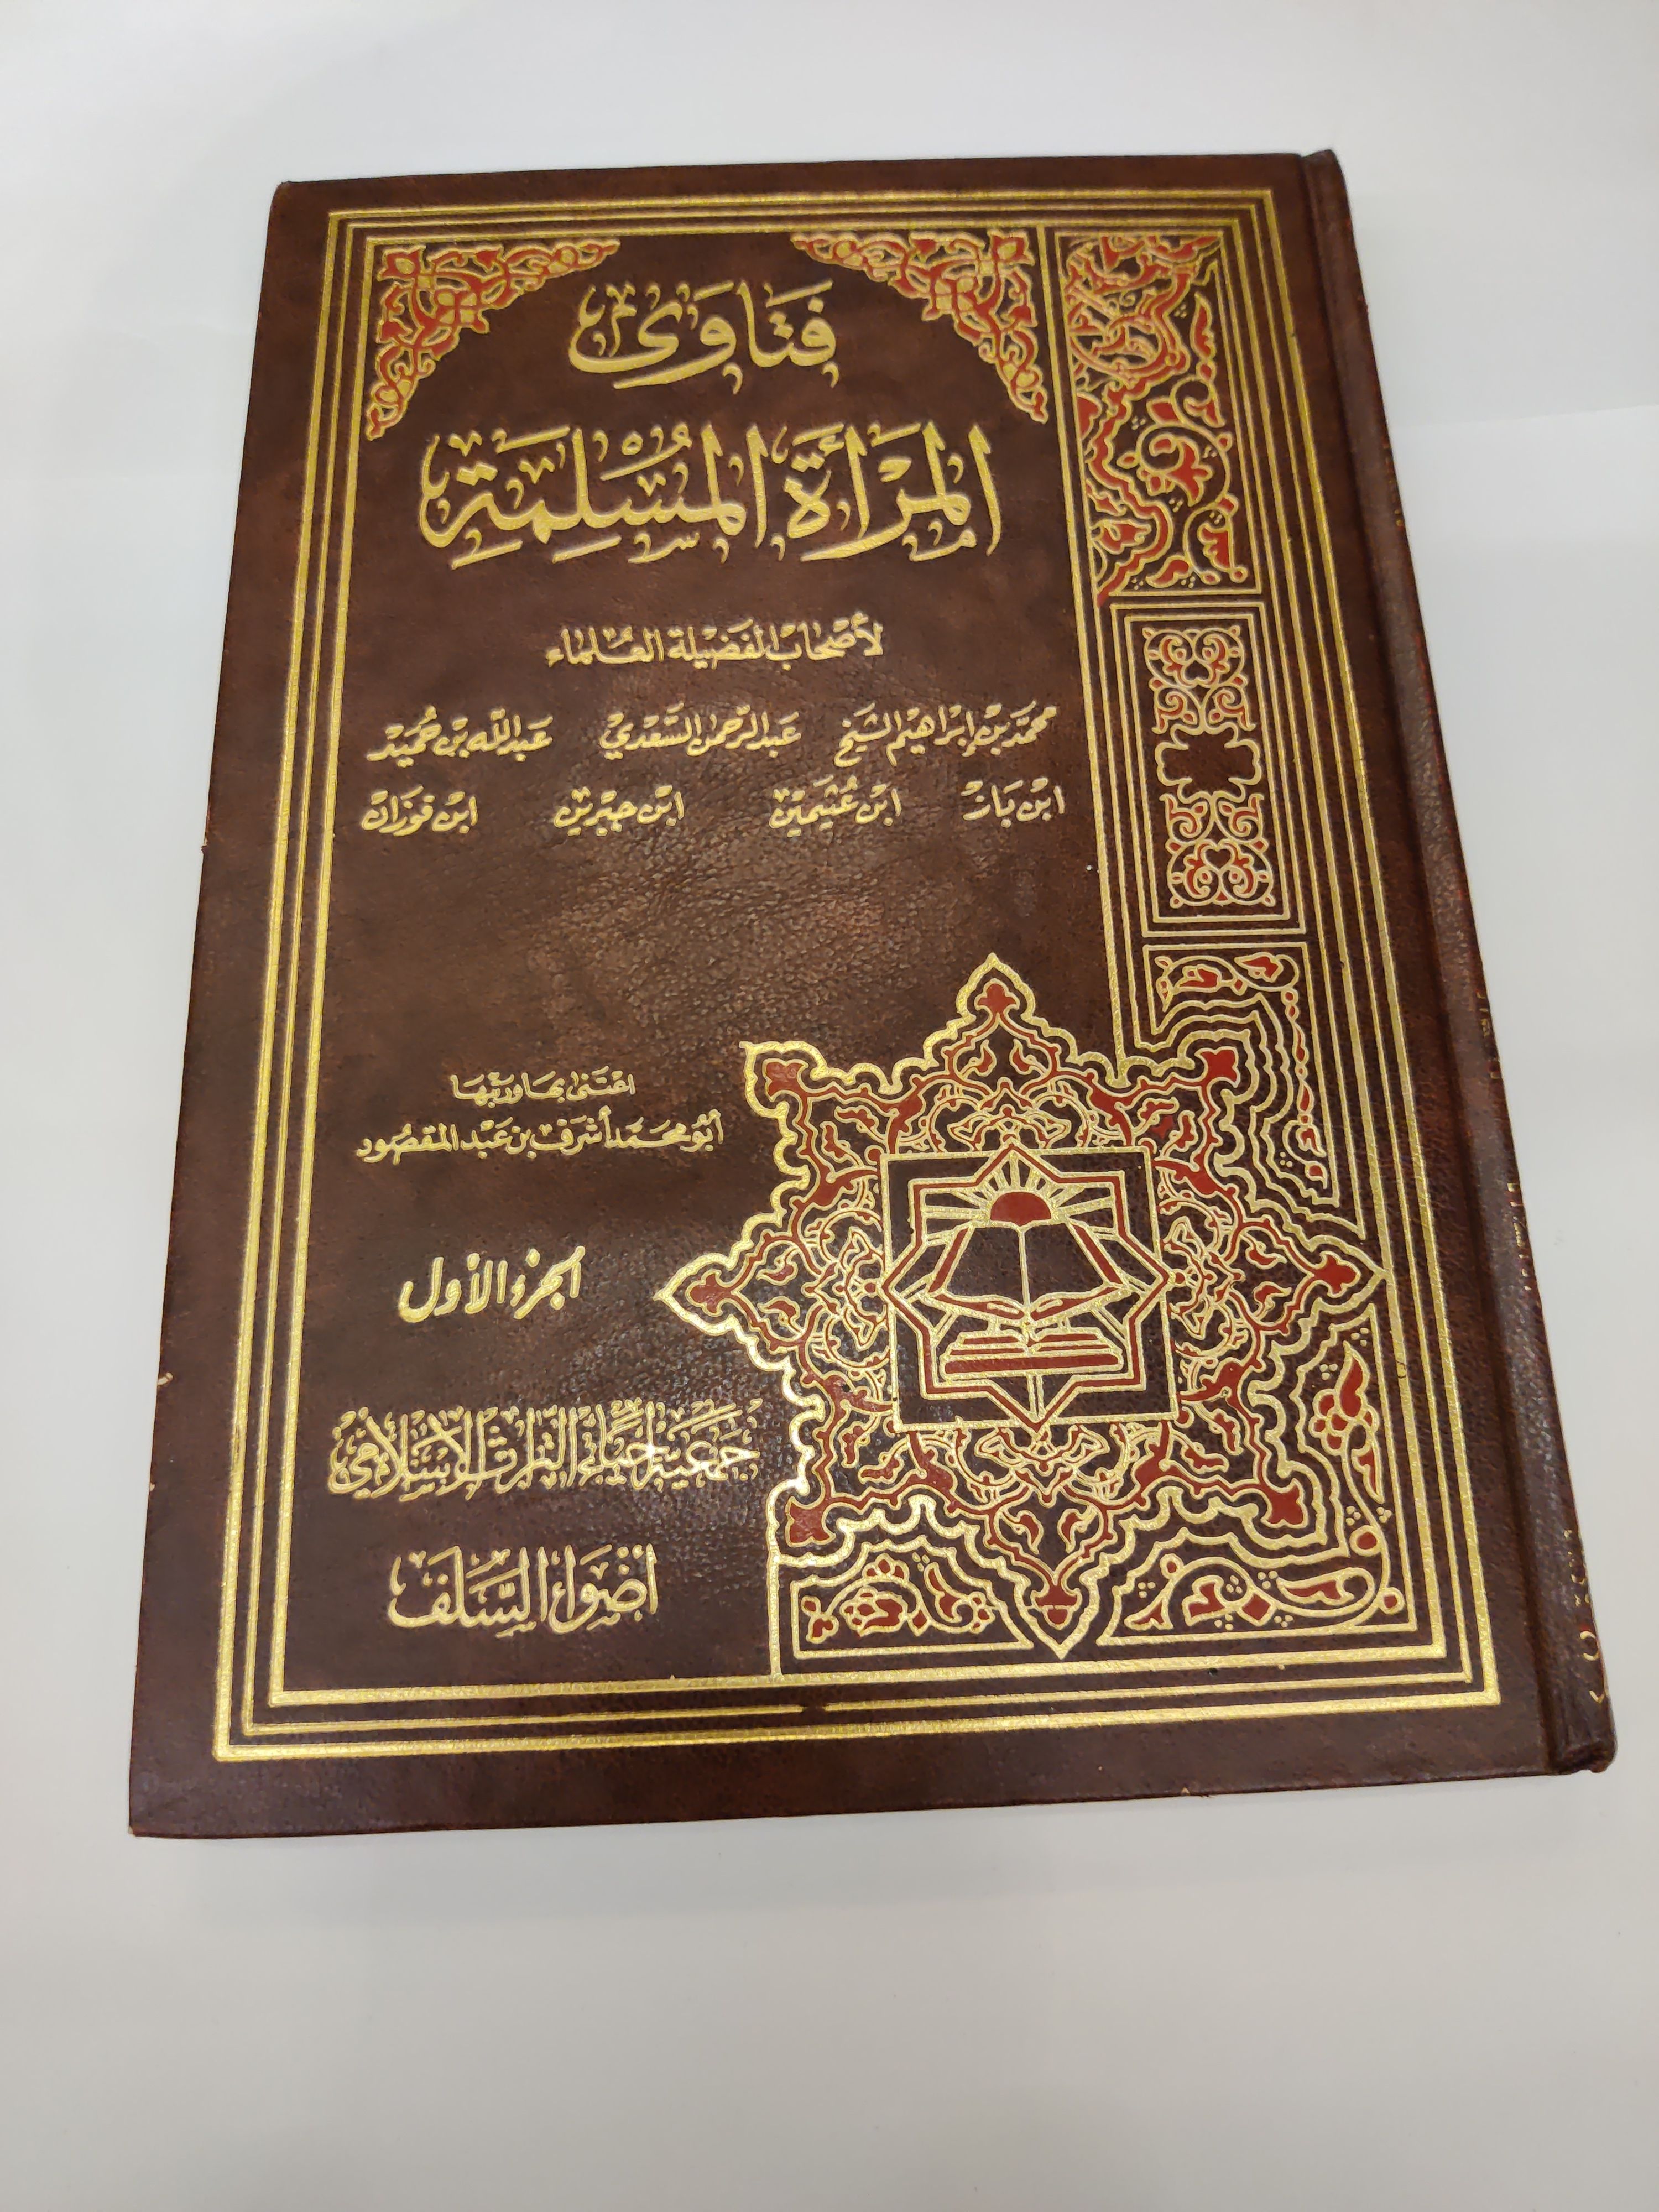 فَتَاوَى
المَرْأَةِ المُسْلِمَةِ
لأصْحَابِ الفَضِيلَةِ العُلَمَاء
محمّد بْن إبْرَاهِيم الشَيخ عَبد الرّحمن السَّعْدي عَبد اللّه بن حُمَيد
ابْن بَاز ابْن عُثَيمَين ابْن جبْرين ابْن فوْزَان
اعْتَنى بهَا وَرتّبهَا
أبُو محَمّد أشرَف بن عَبْد المَقصُود
الجزء الأول
جَمعيّة إحيَاء التراث الإسْلَامي
أضْوَاء السَّلَف